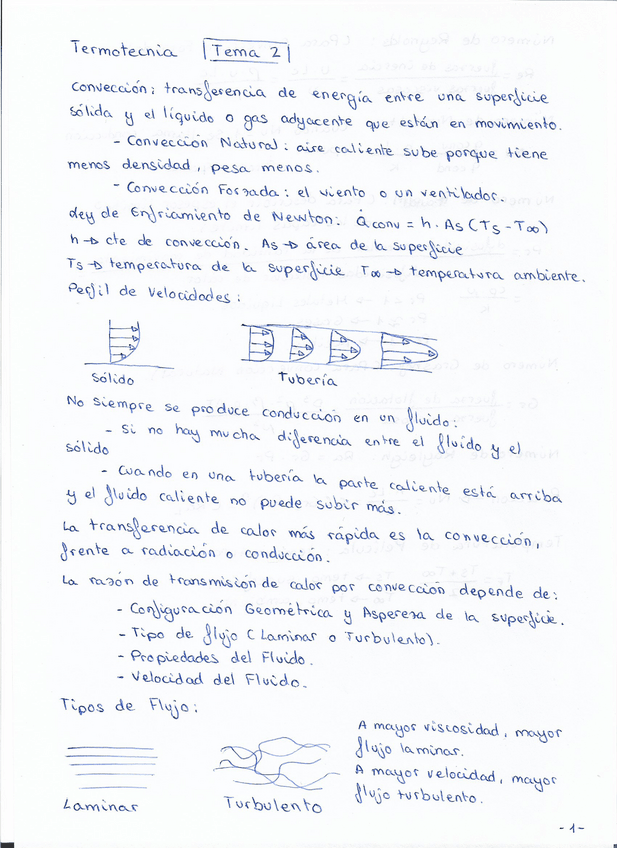 Termotecnia Tema 2
Convección: transferencia de energía entre una superficie
sólida y el líquido o gas adyacente que están en movimiento.
- Convección Natural: aire caliente sube porque tiene
menos densidad, pesa menos.
- Convección Forzada: el viento o un ventilador.
Ley de Enfriamiento de Newton: Q̇conv = h · As (Ts - T∞)
h → cte de convección. As → área de la superficie
Ts → temperatura de la superficie T∞ → temperatura ambiente.
Perfil de Velocidades:
Sólido Tubería
No siempre se produce conducción en un fluido:
- Si no hay mucha diferencia entre el fluido y el
sólido
- Cuando en una tubería la parte caliente está arriba
y el fluido caliente no puede subir más.
La transferencia de calor más rápida es la convección,
frente a radiación o conducción.
La razón de transmisión de calor por convección depende de:
- Configuración Geométrica y Aspereza de la superficie.
- Tipo de flujo (Laminar o Turbulento).
- Propiedades del Fluido.
- Velocidad del Fluido.
Tipos de Flujo:
A mayor viscosidad, mayor
flujo laminar.
A mayor velocidad, mayor
flujo turbulento.
Laminar Turbulento
-1-